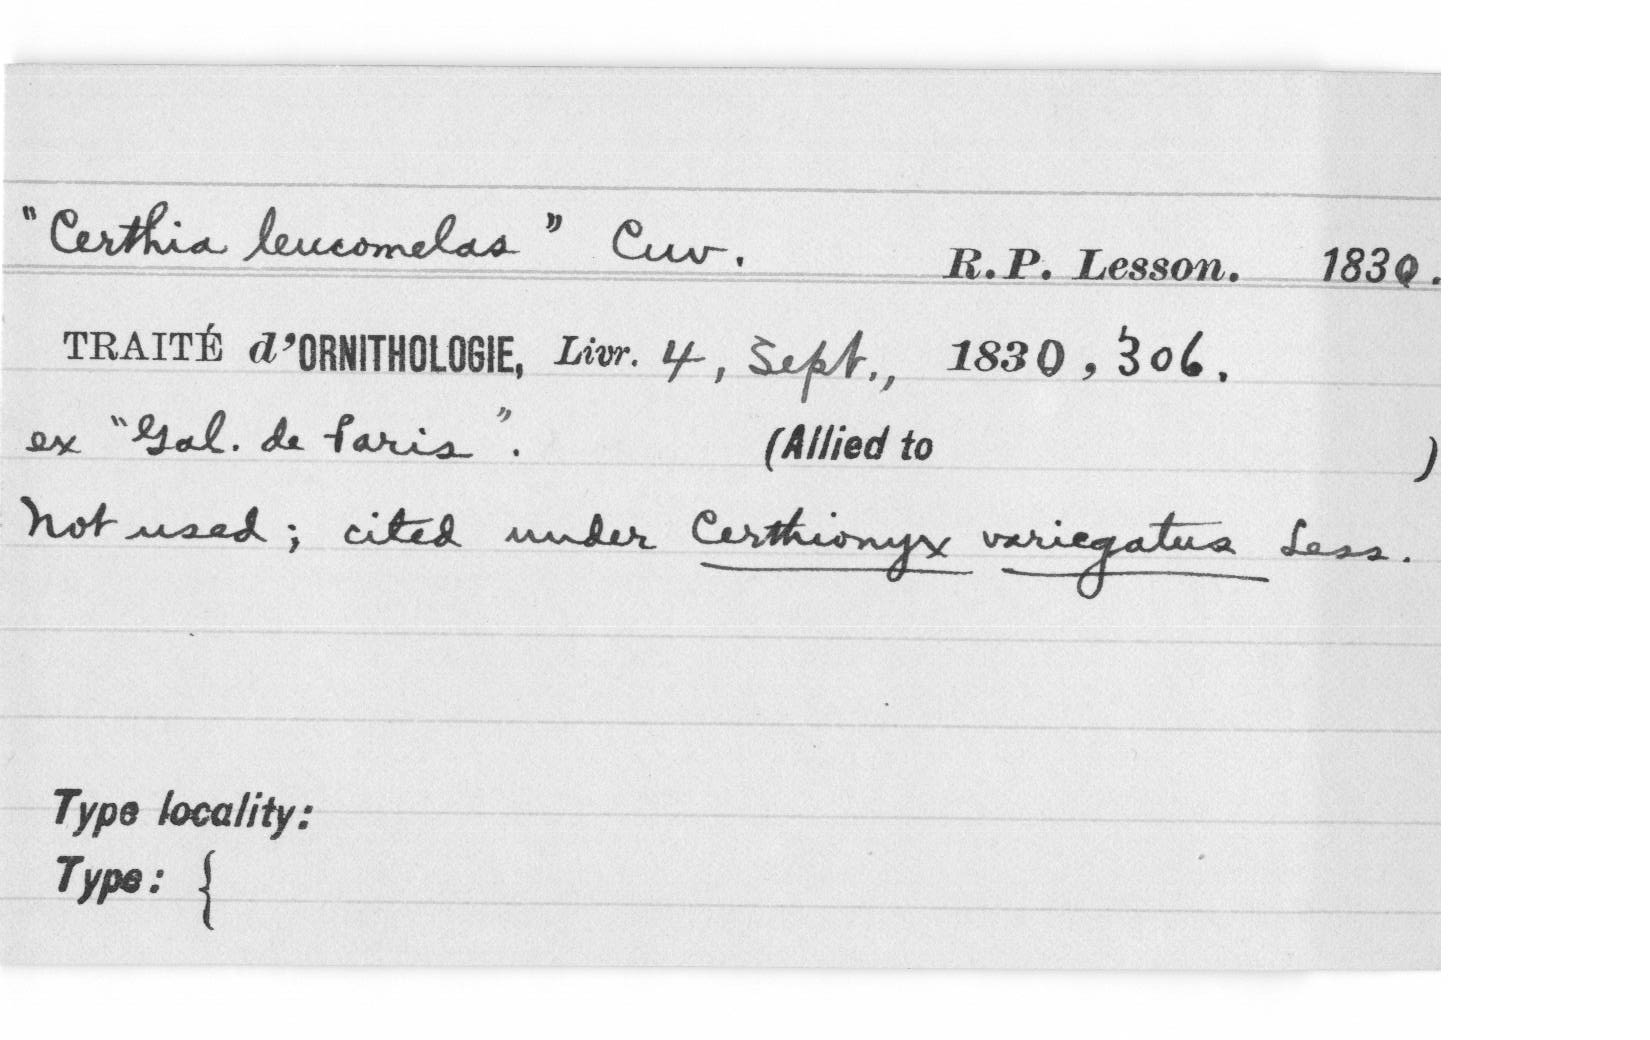 "Certhia leucomelas" Cuv. R.P. Lesson. 1830.
TRAITÉ d'ORNITHOLOGIE, Livr. 4, Sept., 1830, 306.
ex "Gal. de Paris". (Allied to )
Not used; cited under Certhionyx variegatus Less.
Type locality:
Type: {